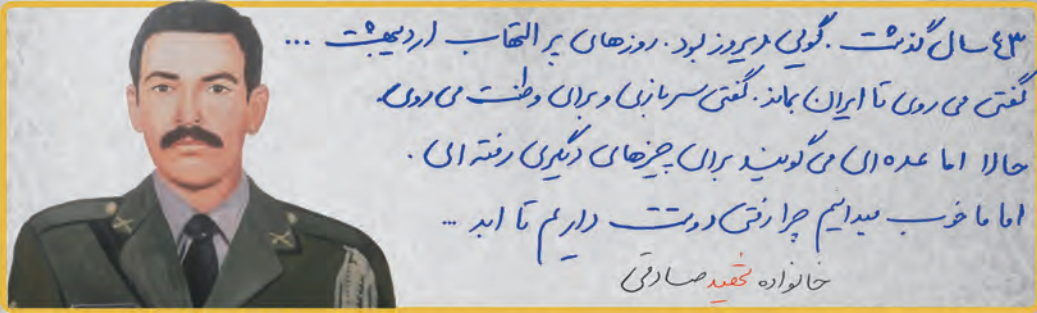 ۴۳ سال گذشت. گویی دیروز بود. روزهای پر التهاب اردیبهشت ...
گفتی می روی تا ایران بماند. گفتی سربازی و برای وطنت می روی.
حالا اما عده ای می گویند برای چیزهای دیگری رفته ای.
اما ما خوب میدانیم چرا رفتی دوستت داریم تا ابد ...
خانواده شهید صادقی